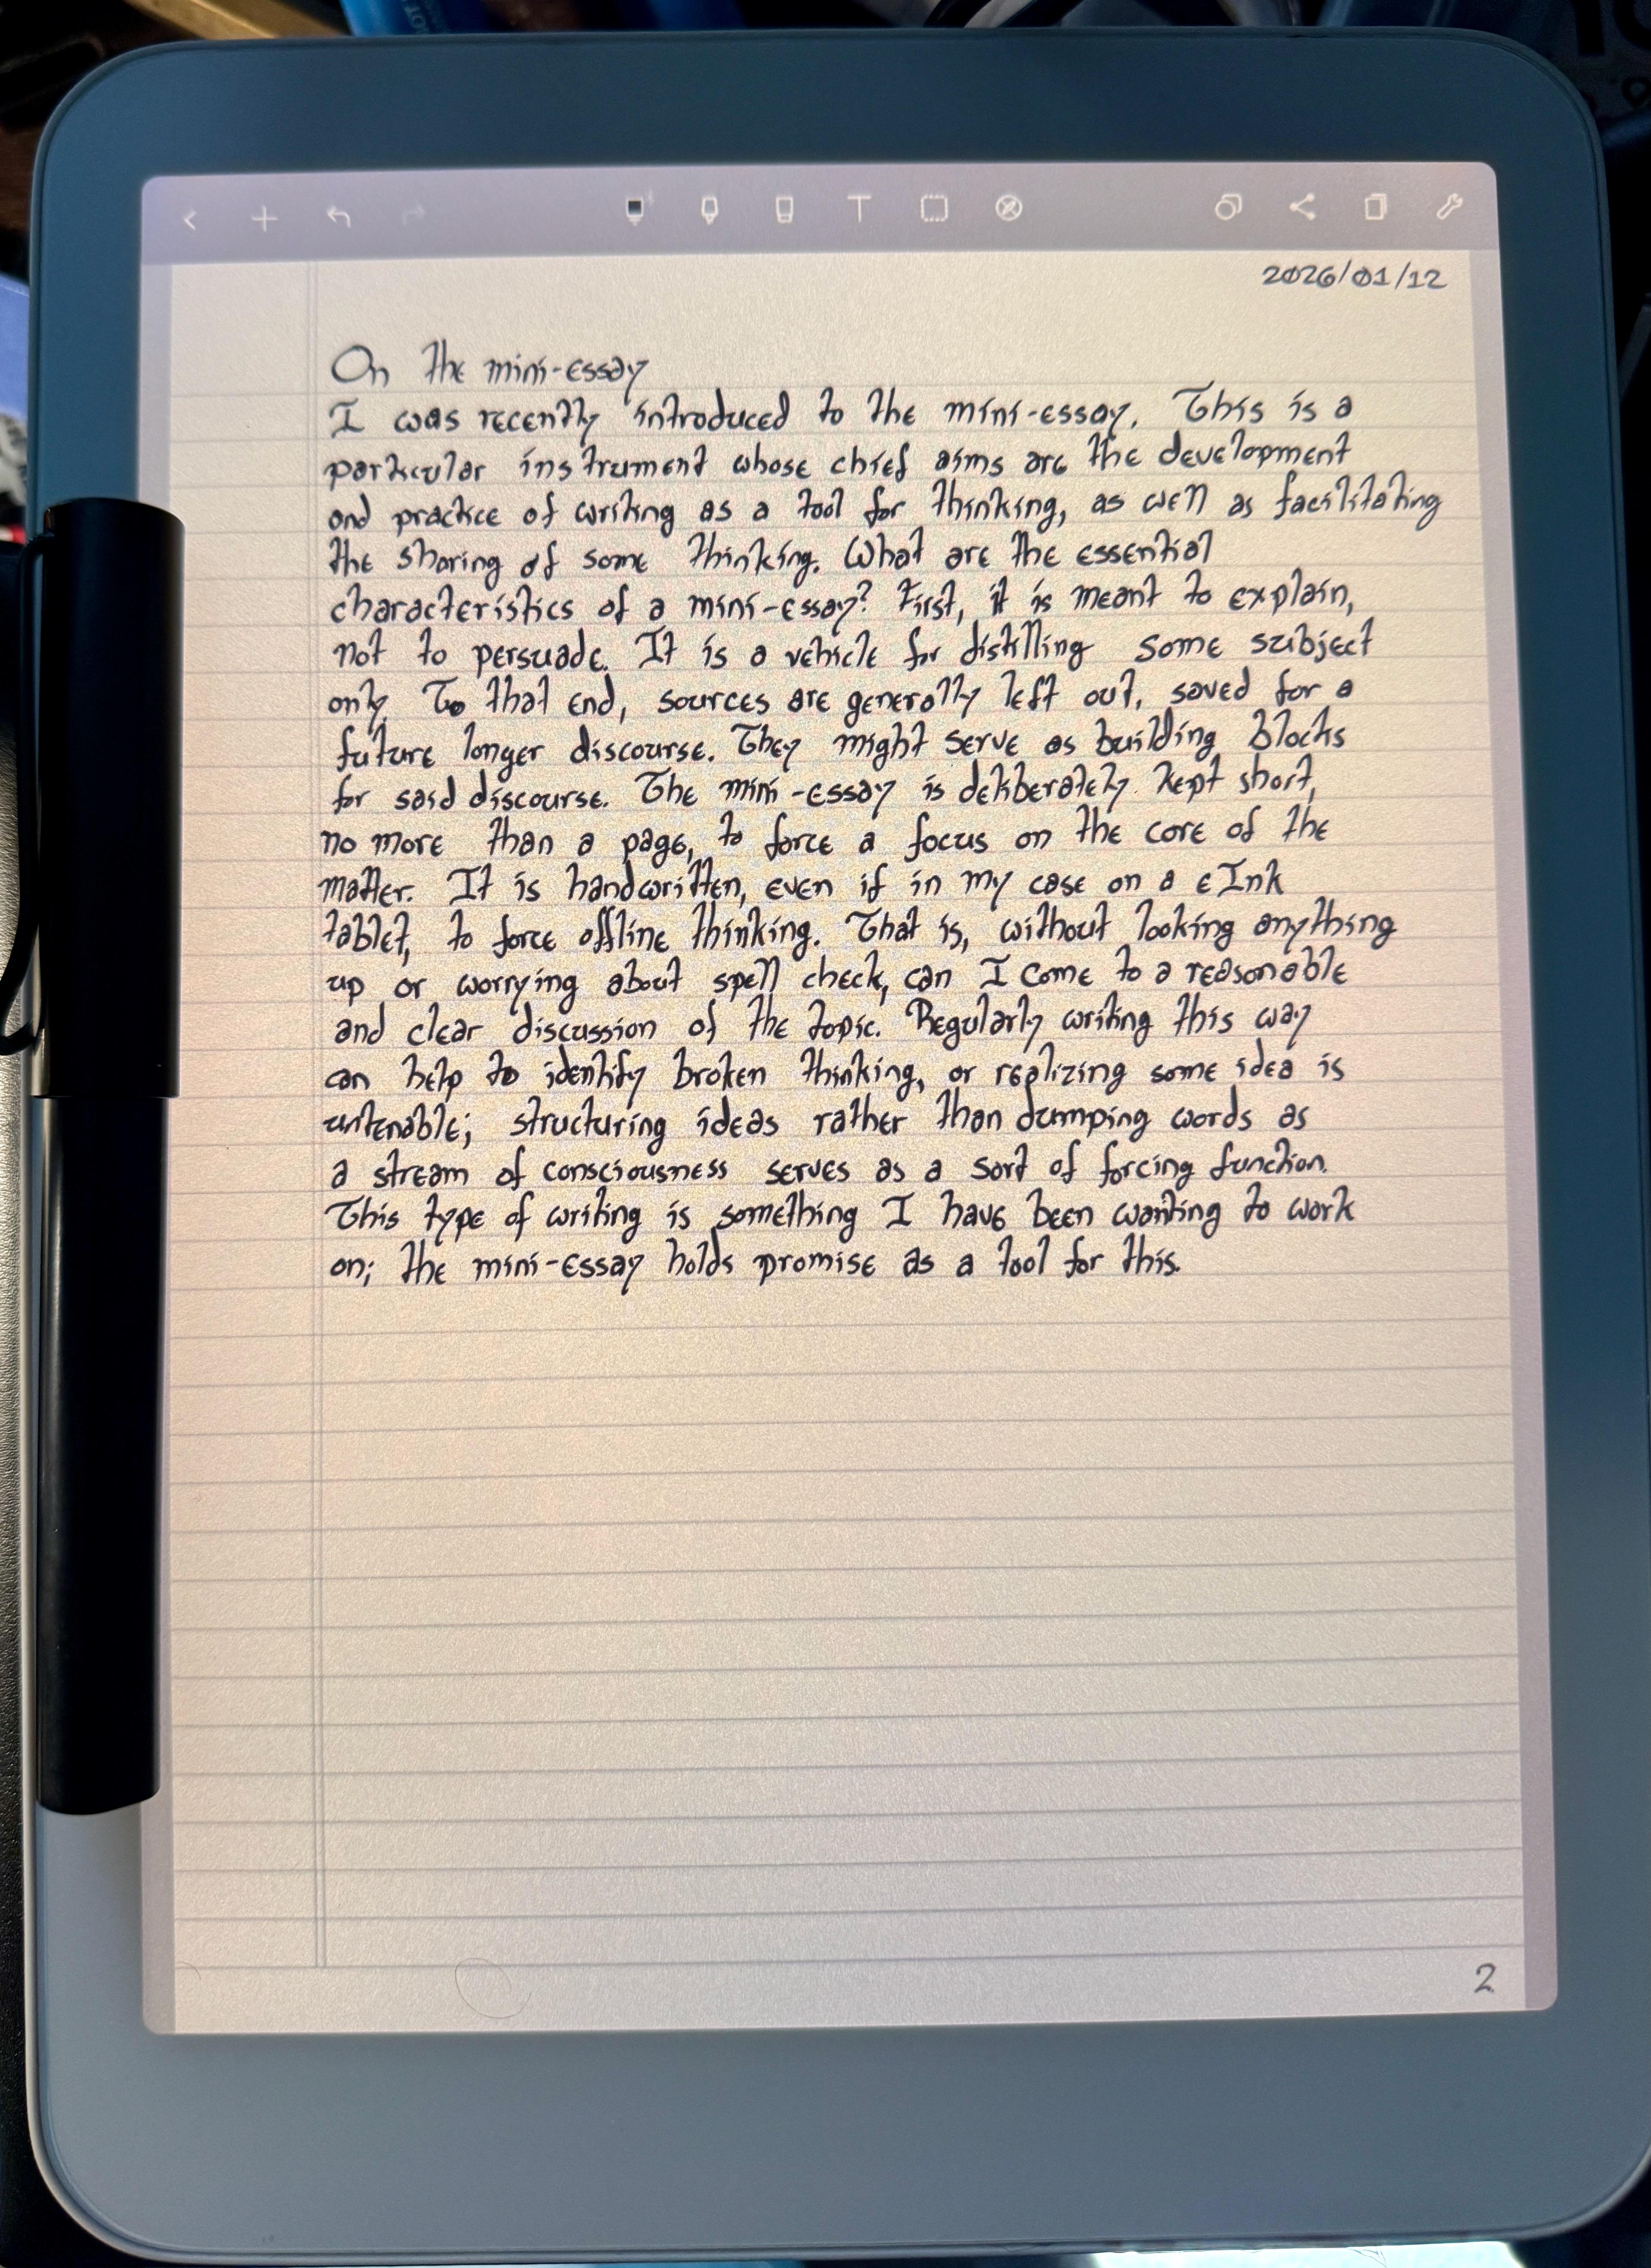 2026/01/12
On the mini-essay
I was recently introduced to the mini-essay. This is a
particular instrument whose chief aims are the development
and practice of writing as a tool for thinking, as well as facilitating
the sharing of some thinking. What are the essential
characteristics of a mini-essay? First, it is meant to explain,
not to persuade. It is a vehicle for distilling some subject
only. To that end, sources are generally left out, saved for a
future longer discourse. They might serve as building blocks
for said discourse. The mini-essay is deliberately kept short,
no more than a page, to force a focus on the core of the
matter. It is handwritten, even if in my case on a eInk
tablet, to force offline thinking. That is, without looking anything
up or worrying about spell check, can I come to a reasonable
and clear discussion of the topic. Regularly writing this way
can help to identify broken thinking, or realizing some idea is
untenable; structuring ideas rather than dumping words as
a stream of consciousness serves as a sort of forcing function.
This type of writing is something I have been wanting to work
on; the mini-essay holds promise as a tool for this.
2